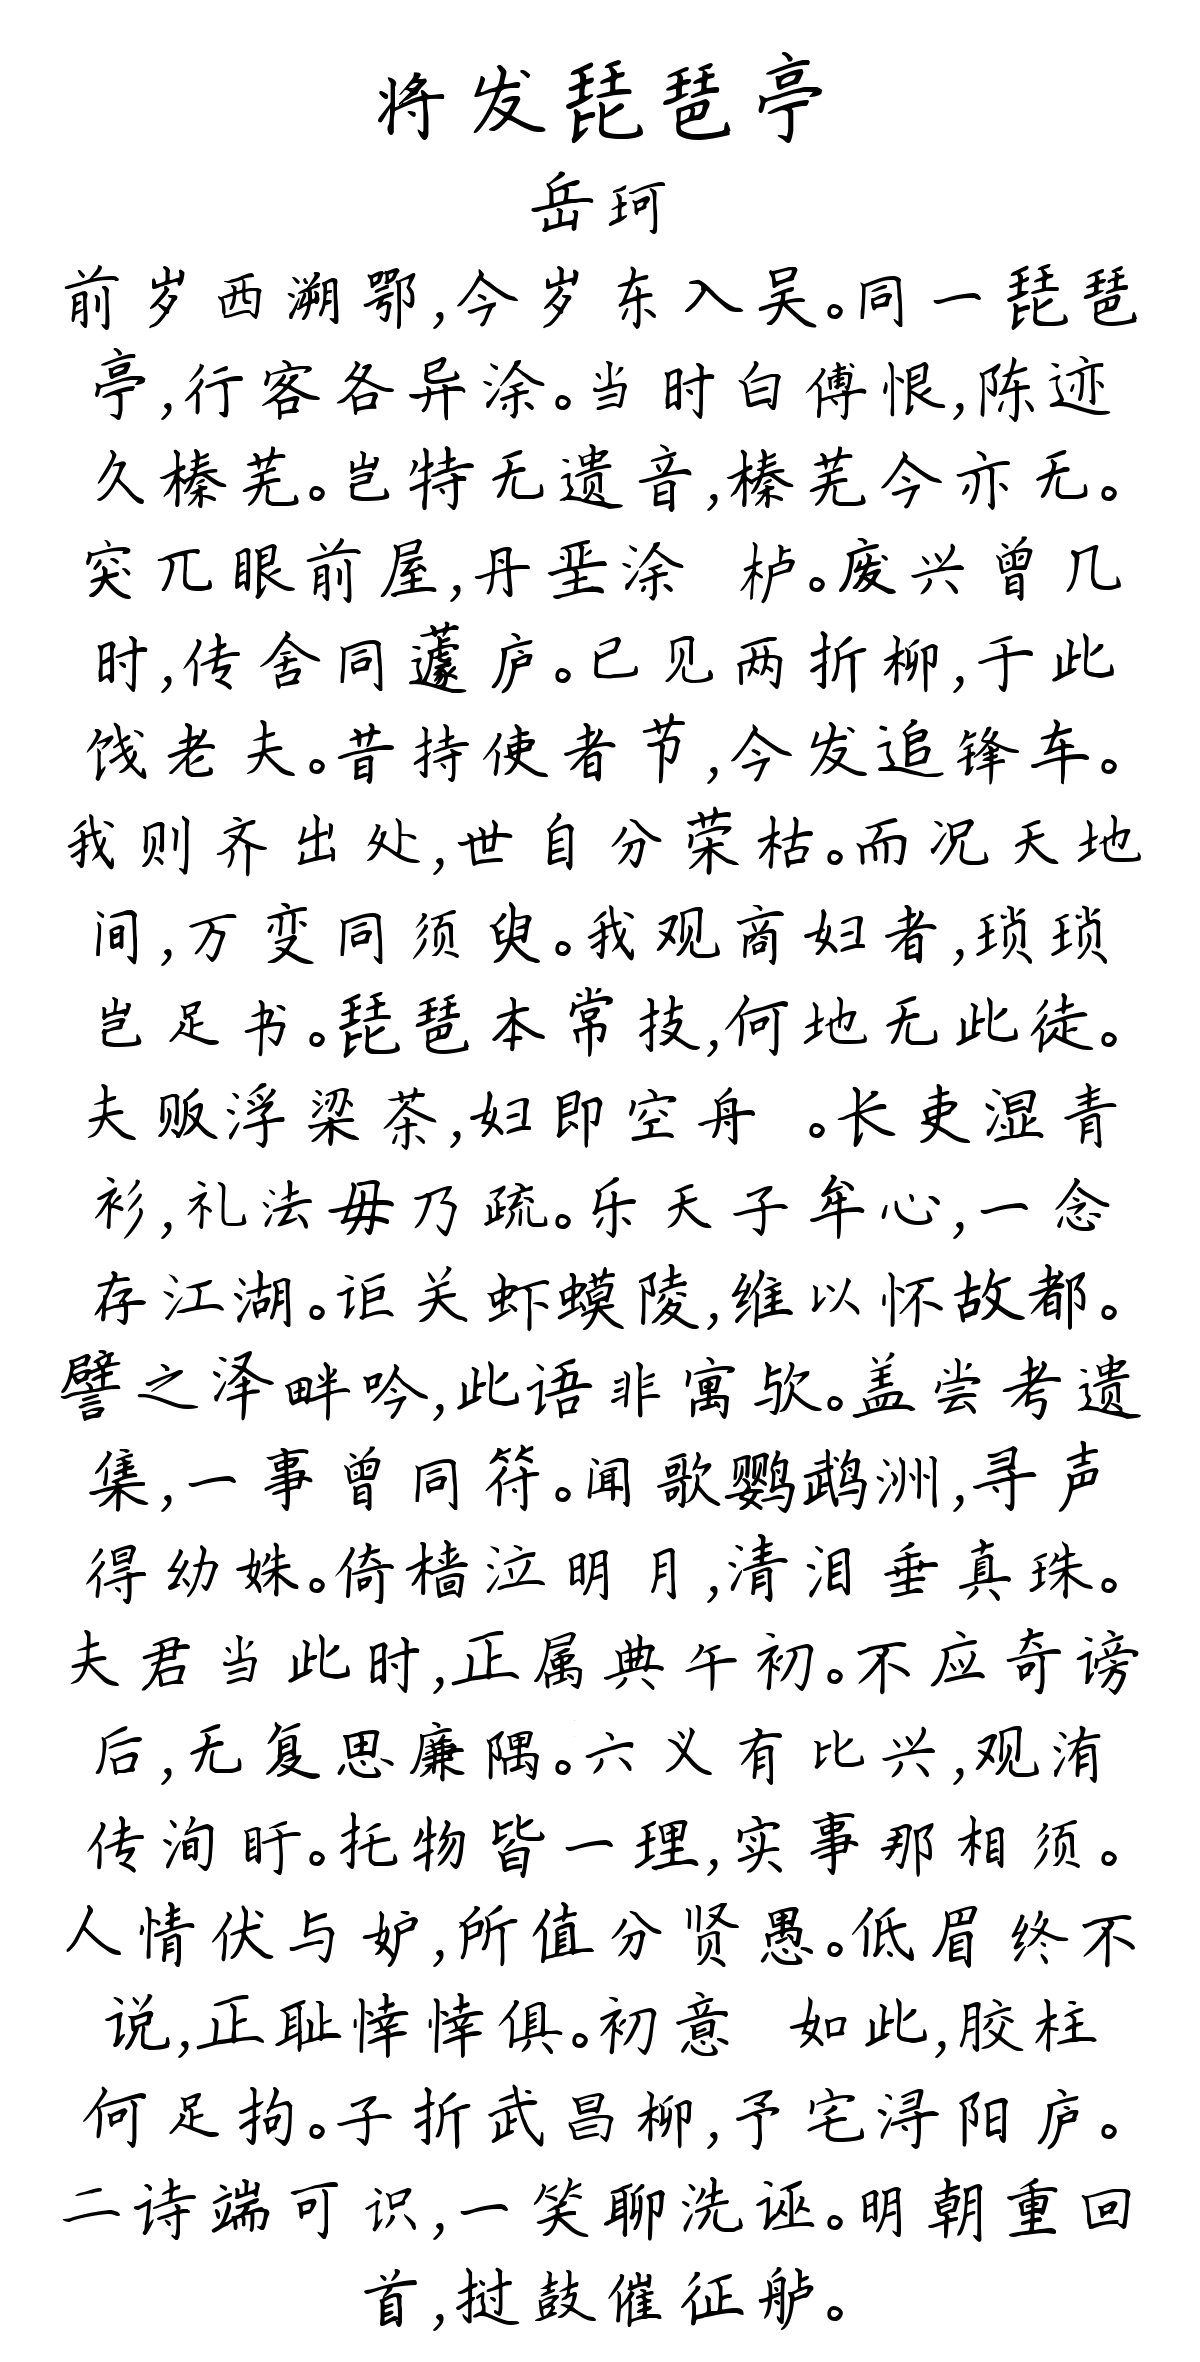 将发琵琶亭
岳珂
前岁西溯鄂,今岁东入吴。同一琵琶
亭,行客各异涂。当时白傅恨,陈迹
久榛芜。岂特无遗音,榛芜今亦无。
突兀眼前屋,丹垩涂 栌。废兴曾几
时,传舍同蘧庐。已见两折柳,于此
饯老夫。昔持使者节,今发追锋车。
我则齐出处,世自分荣枯。而况天地
间,万变同须臾。我观商妇者,琐琐
岂足书。琵琶本常技,何地无此徒。
夫贩浮梁茶,妇即空舟 。长吏湿青
衫,礼法毋乃疏。乐天子牟心,一念
存江湖。讵关虾蟆陵,维以怀故都。
譬之泽畔吟,此语非寓欤。盖尝考遗
集,一事曾同符。闻歌鹦鹉洲,寻声
得幼姝。倚樯泣明月,清泪垂真珠。
夫君当此时,正属典午初。不应奇谤
后,无复思廉隅。六义有比兴,观洧
传洵盱。托物皆一理,实事那相须。
人情伏与妒,所值分贤愚。低眉终不
说,正耻悻悻俱。初意 如此,胶柱
何足拘。子折武昌柳,予宅浔阳庐。
二诗端可识,一笑聊洗诬。明朝重回
首,挝鼓催征舻。